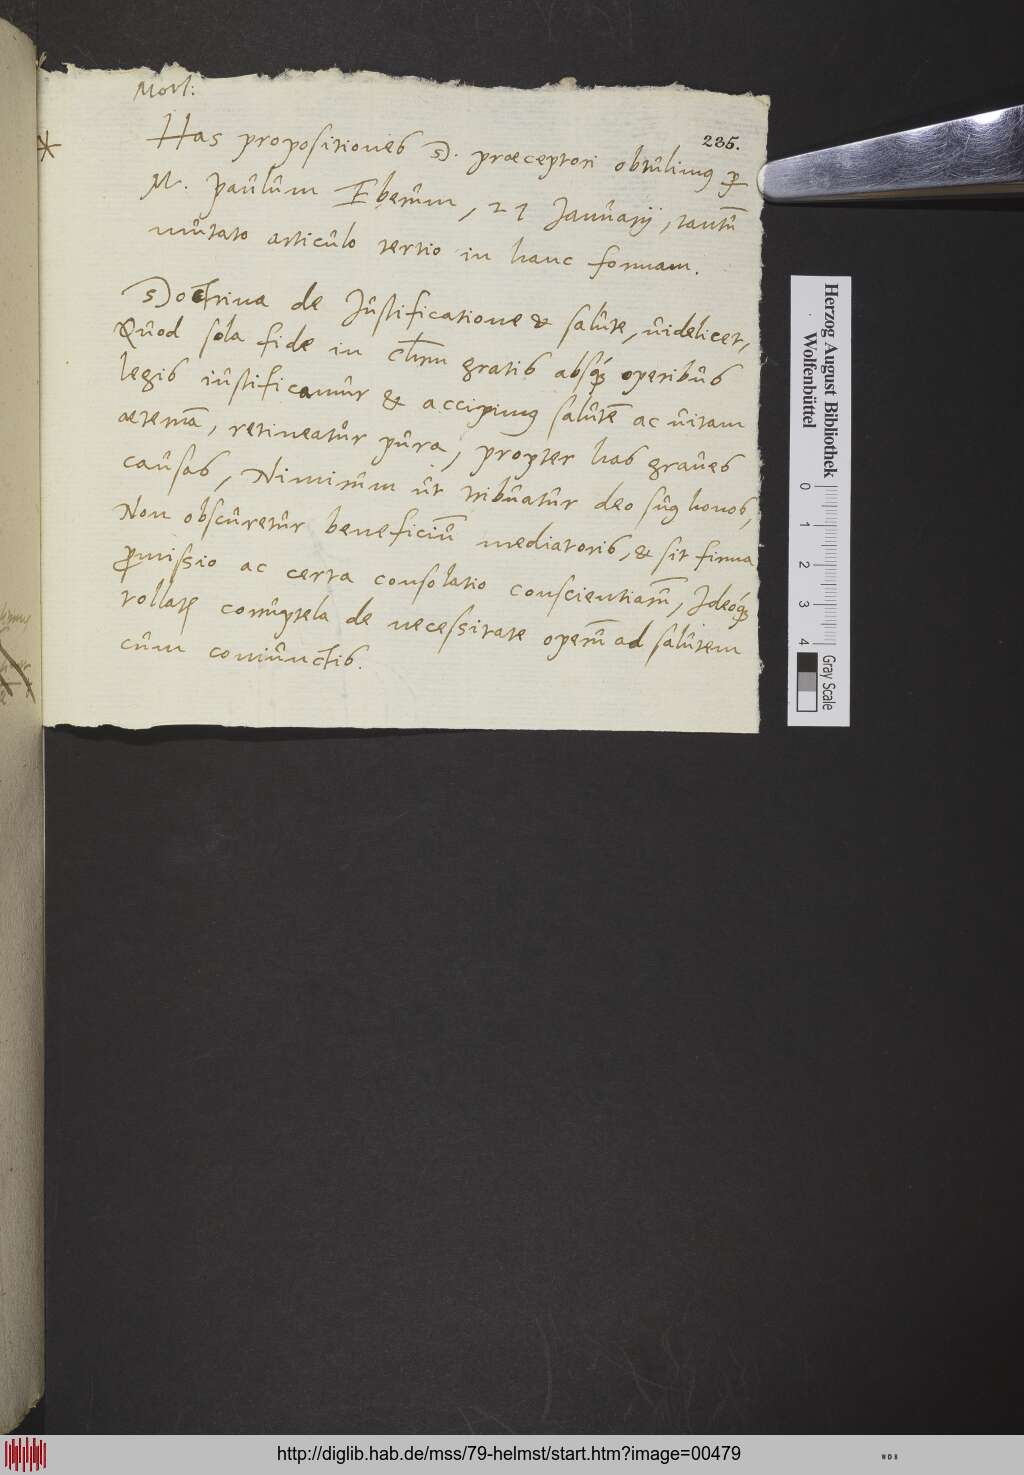 Morl:
235.
Has propositiones D. præceptori obtulimꝰ ꝑ
M. Paulum Eberum, 21 Januarij, tantū
mutato articulo tertio in hanc formam.
Doctrina de Justificatione & salute, uidelicet,
Quod sola fide in Chrm gratis absqꝫ operibus
legis iustificamur & accipimꝰ salutē ac uitam
æternā, retineatur pura, propter has graues
causas, Nimirum ut tribuatur deo suꝰ honos,
Non obscuretur beneficiū mediatoris, & sit firma
ꝓmissio ac certa consolatio conscientiarū, Ideoqꝫ
tollatꝛ corruptela de necessitate operū ad salutem
cum coniunctis.
Herzog August Bibliothek
Wolfenbüttel
0 1 2 3 4
Gray Scale
http://diglib.hab.de/mss/79-helmst/start.htm?image=00479
WDB